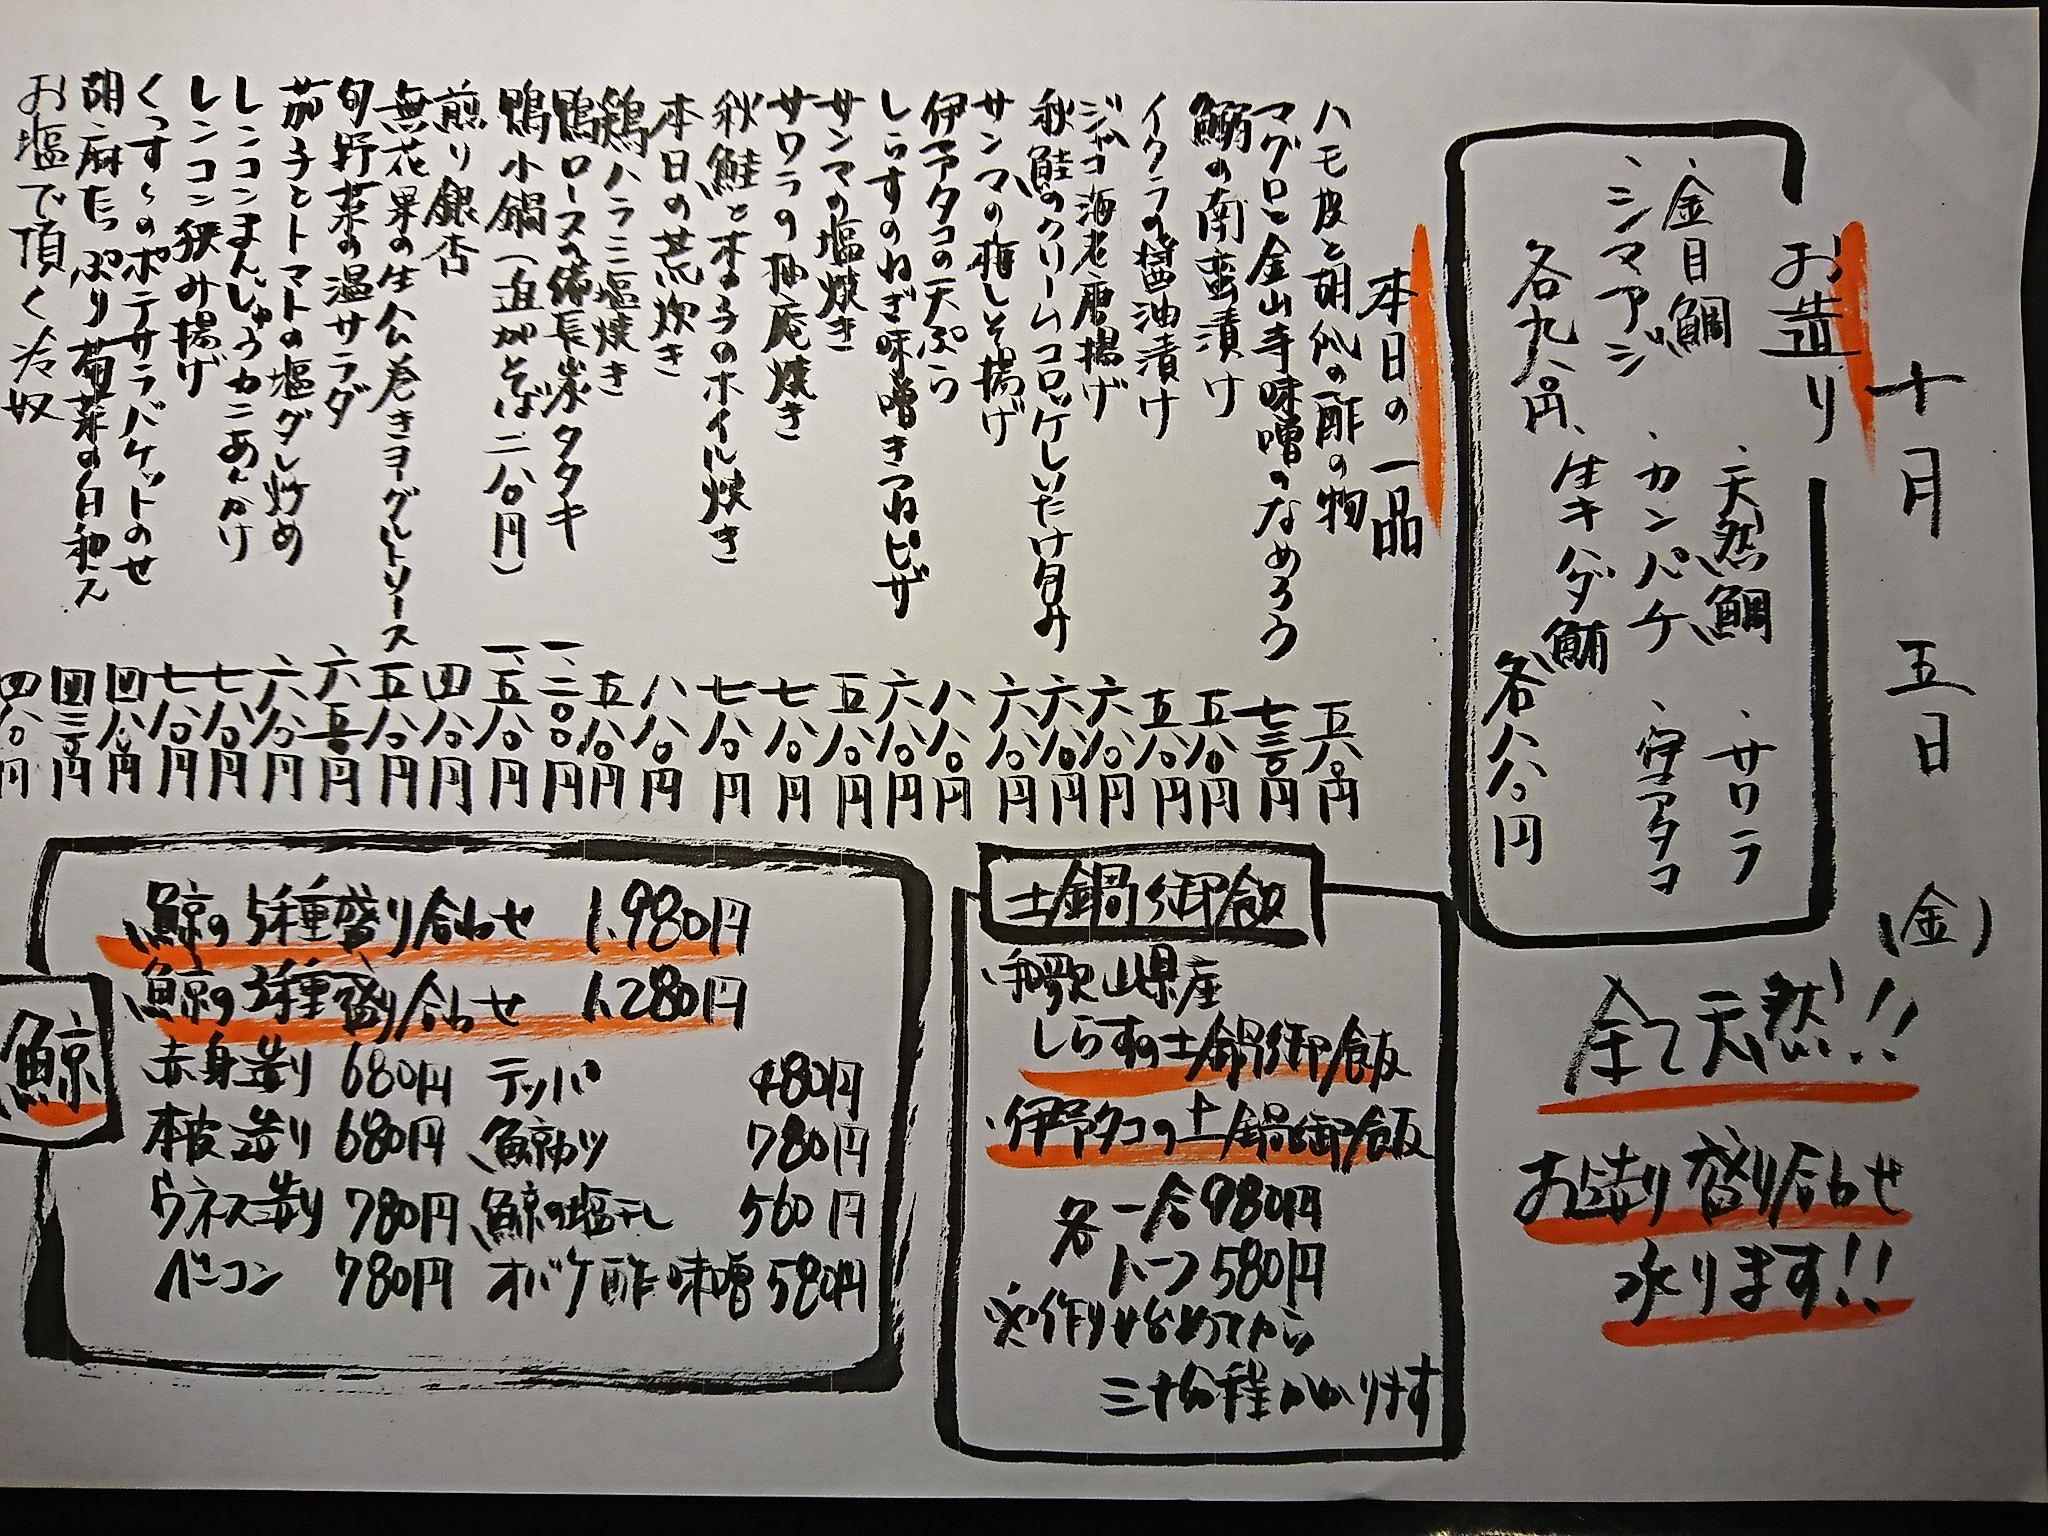 十月 五日 (金)
お造り
、天然鯛 、サワラ
、金目鯛 、カンパチ
、シマアジ
各九八〇円
、生キハダ鮪
各八八〇円
全て天然!!
お造り盛り合わせ
承ります!!
本日の一品
ハモ皮と胡瓜の酢の物 五八〇円
マグロと金山寺味噌のなめろう 七三〇円
鰯の南蛮漬け 五八〇円
イクラの醤油漬け 五八〇円
ジャコ海老唐揚げ 六八〇円
秋鮭のクリームコロッケしいたけ包み 六八〇円
サンマの梅しそ揚げ 六八〇円
伊予タコの天ぷら 八八〇円
しらすのねぎ味噌きつねピザ 六八〇円
サンマの塩焼き 五八〇円
サワラの柚庵焼き 七八〇円
秋鮭ときのこのホイル焼き 七八〇円
本日の荒炊き 八八〇円
鶏ハラミ塩焼き 五八〇円
鴨ロースの備長炭タタキ 一、二〇〇円
鴨小鍋(追加そば二八〇円) 一、五八〇円
煎り銀杏 四八〇円
無花果の生ハム巻きヨーグルトソース 五八〇円
旬野菜の温サラダ 六五〇円
茄子とトマトの塩ダレ炒め 六八〇円
レンコンまんじゅうカニあんかけ 七八〇円
レンコン挟み揚げ 七八〇円
くっす〜のポテサラバケットのせ 四八〇円
胡麻たっぷり菊菜の白和え 四三〇円
お塩で頂く冷奴 四八〇円
土鍋御飯
・和歌山県産
しらすの土鍋御飯
・伊予タコの土鍋御飯
各一合980円
ハーフ580円
※作り始めてから
三十分程かかります
鯨
鯨の5種盛り合わせ 1,980円
鯨の3種盛り合わせ 1,280円
赤身造り 680円 テッパ 480円
本皮造り 680円 鯨カツ 780円
ウネス造り 780円 鯨の塩干し 560円
ベーコン 780円 オバケ酢味噌 580円